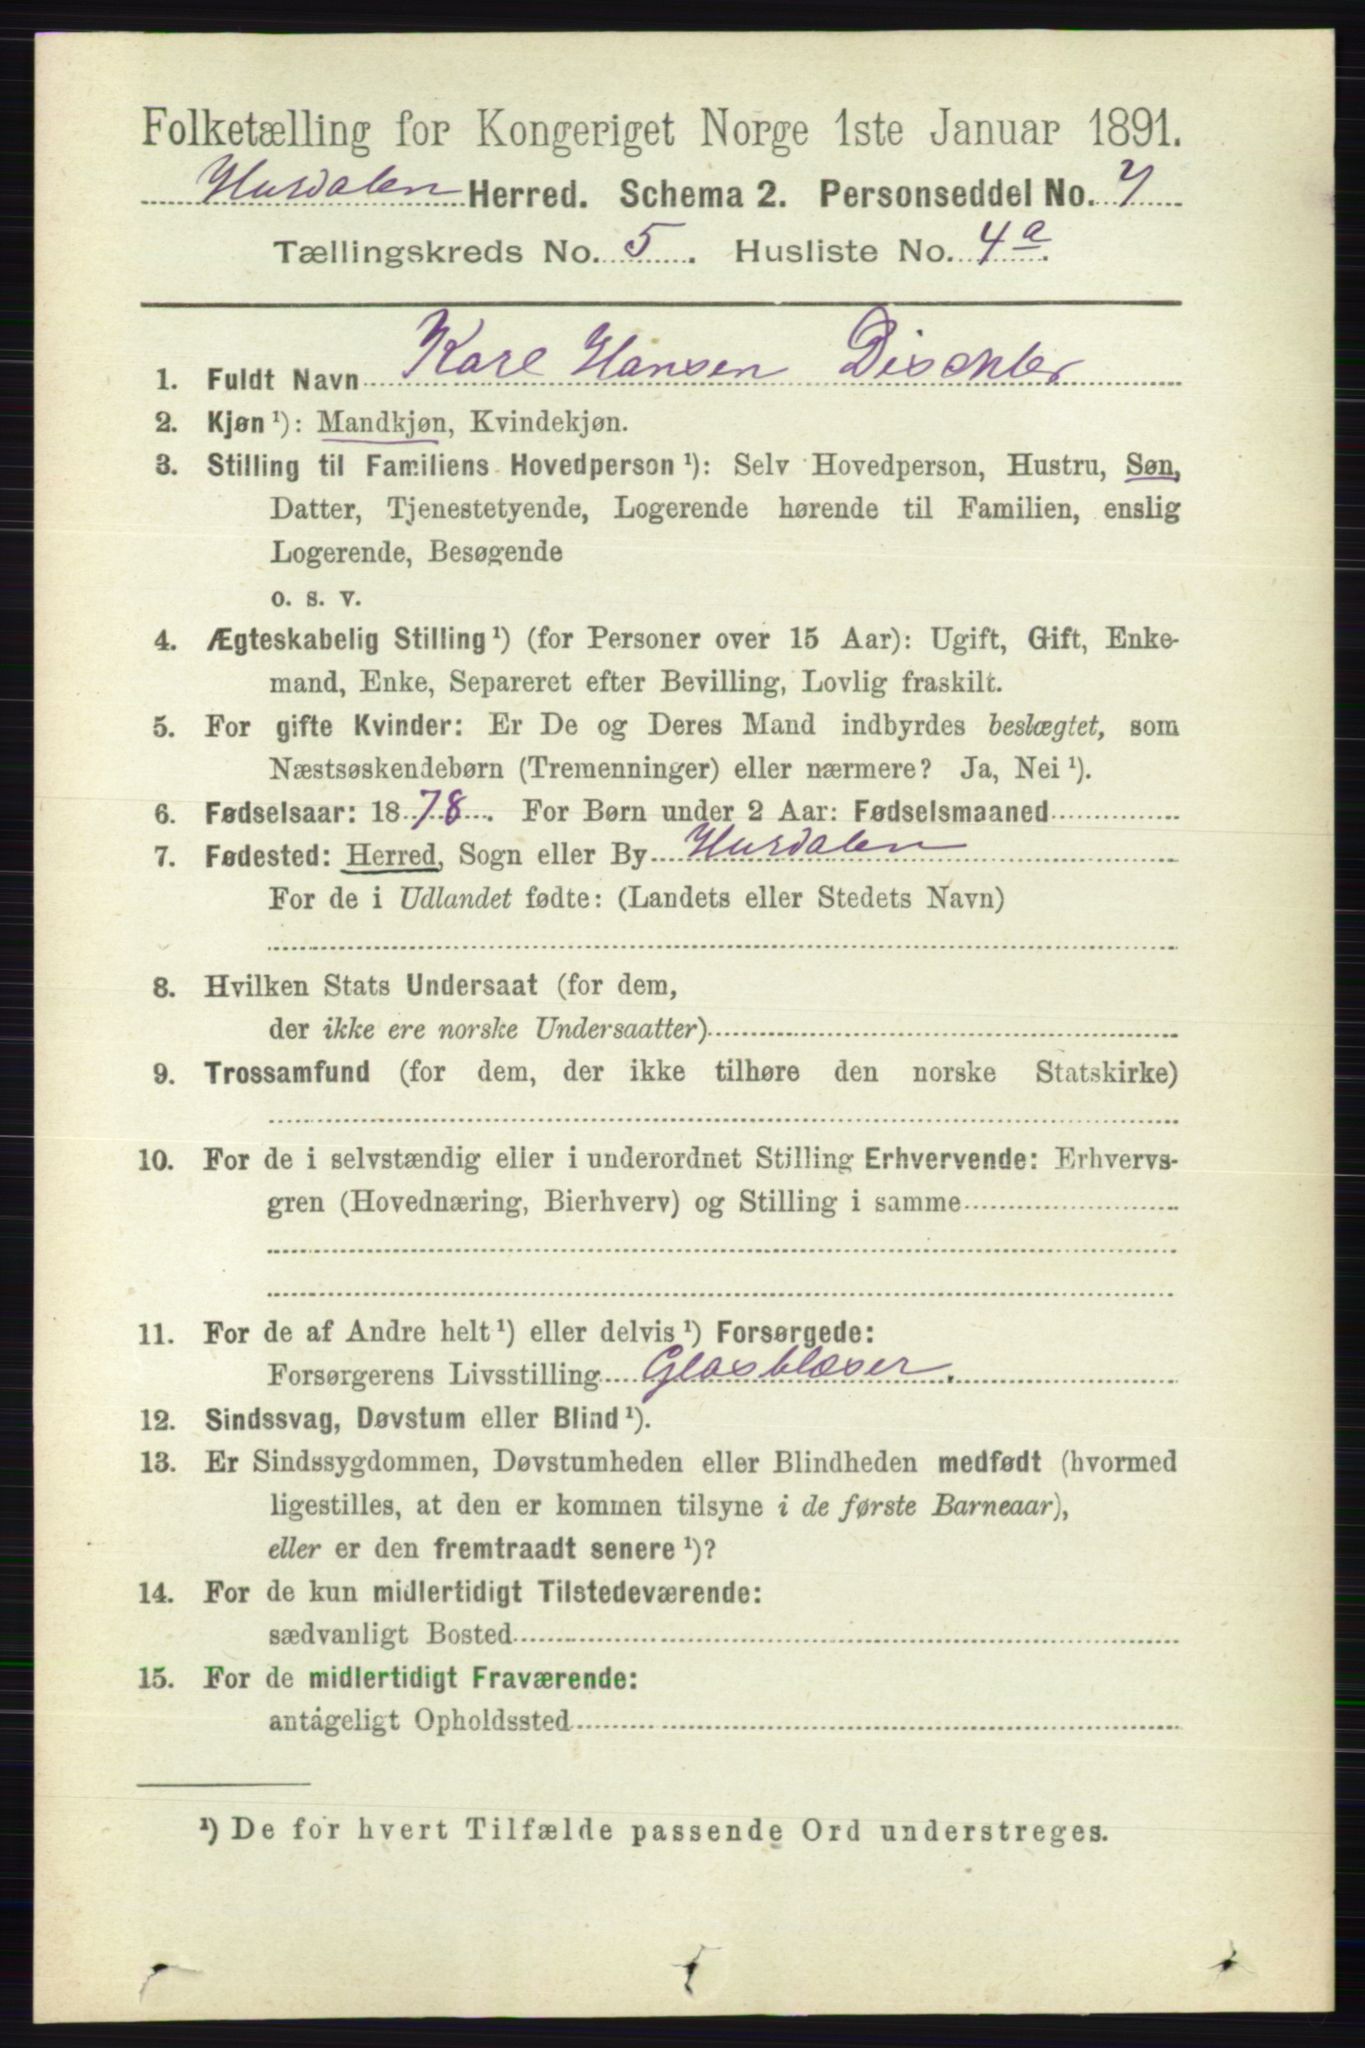 Folketælling for Kongeriget Norge 1ste Januar 1891.
Hurdalen Herred. Schema 2. Personseddel No. 7
Tællingskreds No. 5. Husliste No. 4a.
1. Fuldt Navn Karl Hansen Dischler
2. Kjøn ¹): Mandkjøn, Kvindekjøn.
3. Stilling til Familiens Hovedperson ¹): Selv Hovedperson, Hustru, Søn,
Datter, Tjenestetyende, Logerende hørende til Familien, enslig
Logerende, Besøgende
o. s. v.
4. Ægteskabelig Stilling ¹) (for Personer over 15 Aar): Ugift, Gift, Enke-
mand, Enke, Separeret efter Bevilling, Lovlig fraskilt.
5. For gifte Kvinder: Er De og Deres Mand indbyrdes beslægtet, som
Næstsøskendebørn (Tremenninger) eller nærmere? Ja, Nei ¹).
6. Fødselsaar: 1878. For Børn under 2 Aar: Fødselsmaaned
7. Fødested: Herred, Sogn eller By Hurdalen
For de i Udlandet fødte: (Landets eller Stedets Navn)
8. Hvilken Stats Undersaat (for dem,
der ikke ere norske Undersaatter)
9. Trossamfund (for dem, der ikke tilhøre den norske Statskirke)
10. For de i selvstændig eller i underordnet Stilling Erhvervende: Erhvervs-
gren (Hovednæring, Bierhverv) og Stilling i samme
11. For de af Andre helt ¹) eller delvis ¹) Forsørgede:
Forsørgerens Livsstilling Glasblæser.
12. Sindssvag, Døvstum eller Blind ¹).
13. Er Sindssygdommen, Døvstumheden eller Blindheden medfødt (hvormed
ligestilles, at den er kommen tilsyne i de første Barneaar),
eller er den fremtraadt senere ¹)?
14. For de kun midlertidigt Tilstedeværende:
sædvanligt Bosted
15. For de midlertidigt Fraværende:
antageligt Opholdssted
¹) De for hvert Tilfælde passende Ord understreges.